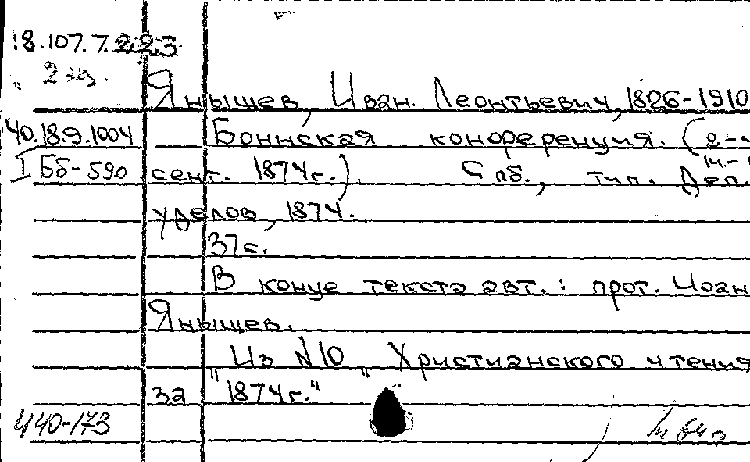 18.107.7.223
2 экз.
Янышев, Иоан. Леонтьевич, 1826-1910
40.18.9.1004 Боннская конференция. (2-4
I Бб-590 сент. 1874г.). Спб., тип. Деп.
уделов, 1874.
37с.
В конце текста авт.: прот. Иоан
Янышев.
"Из N10 "Христианского чтения
за 1874г."
440-173